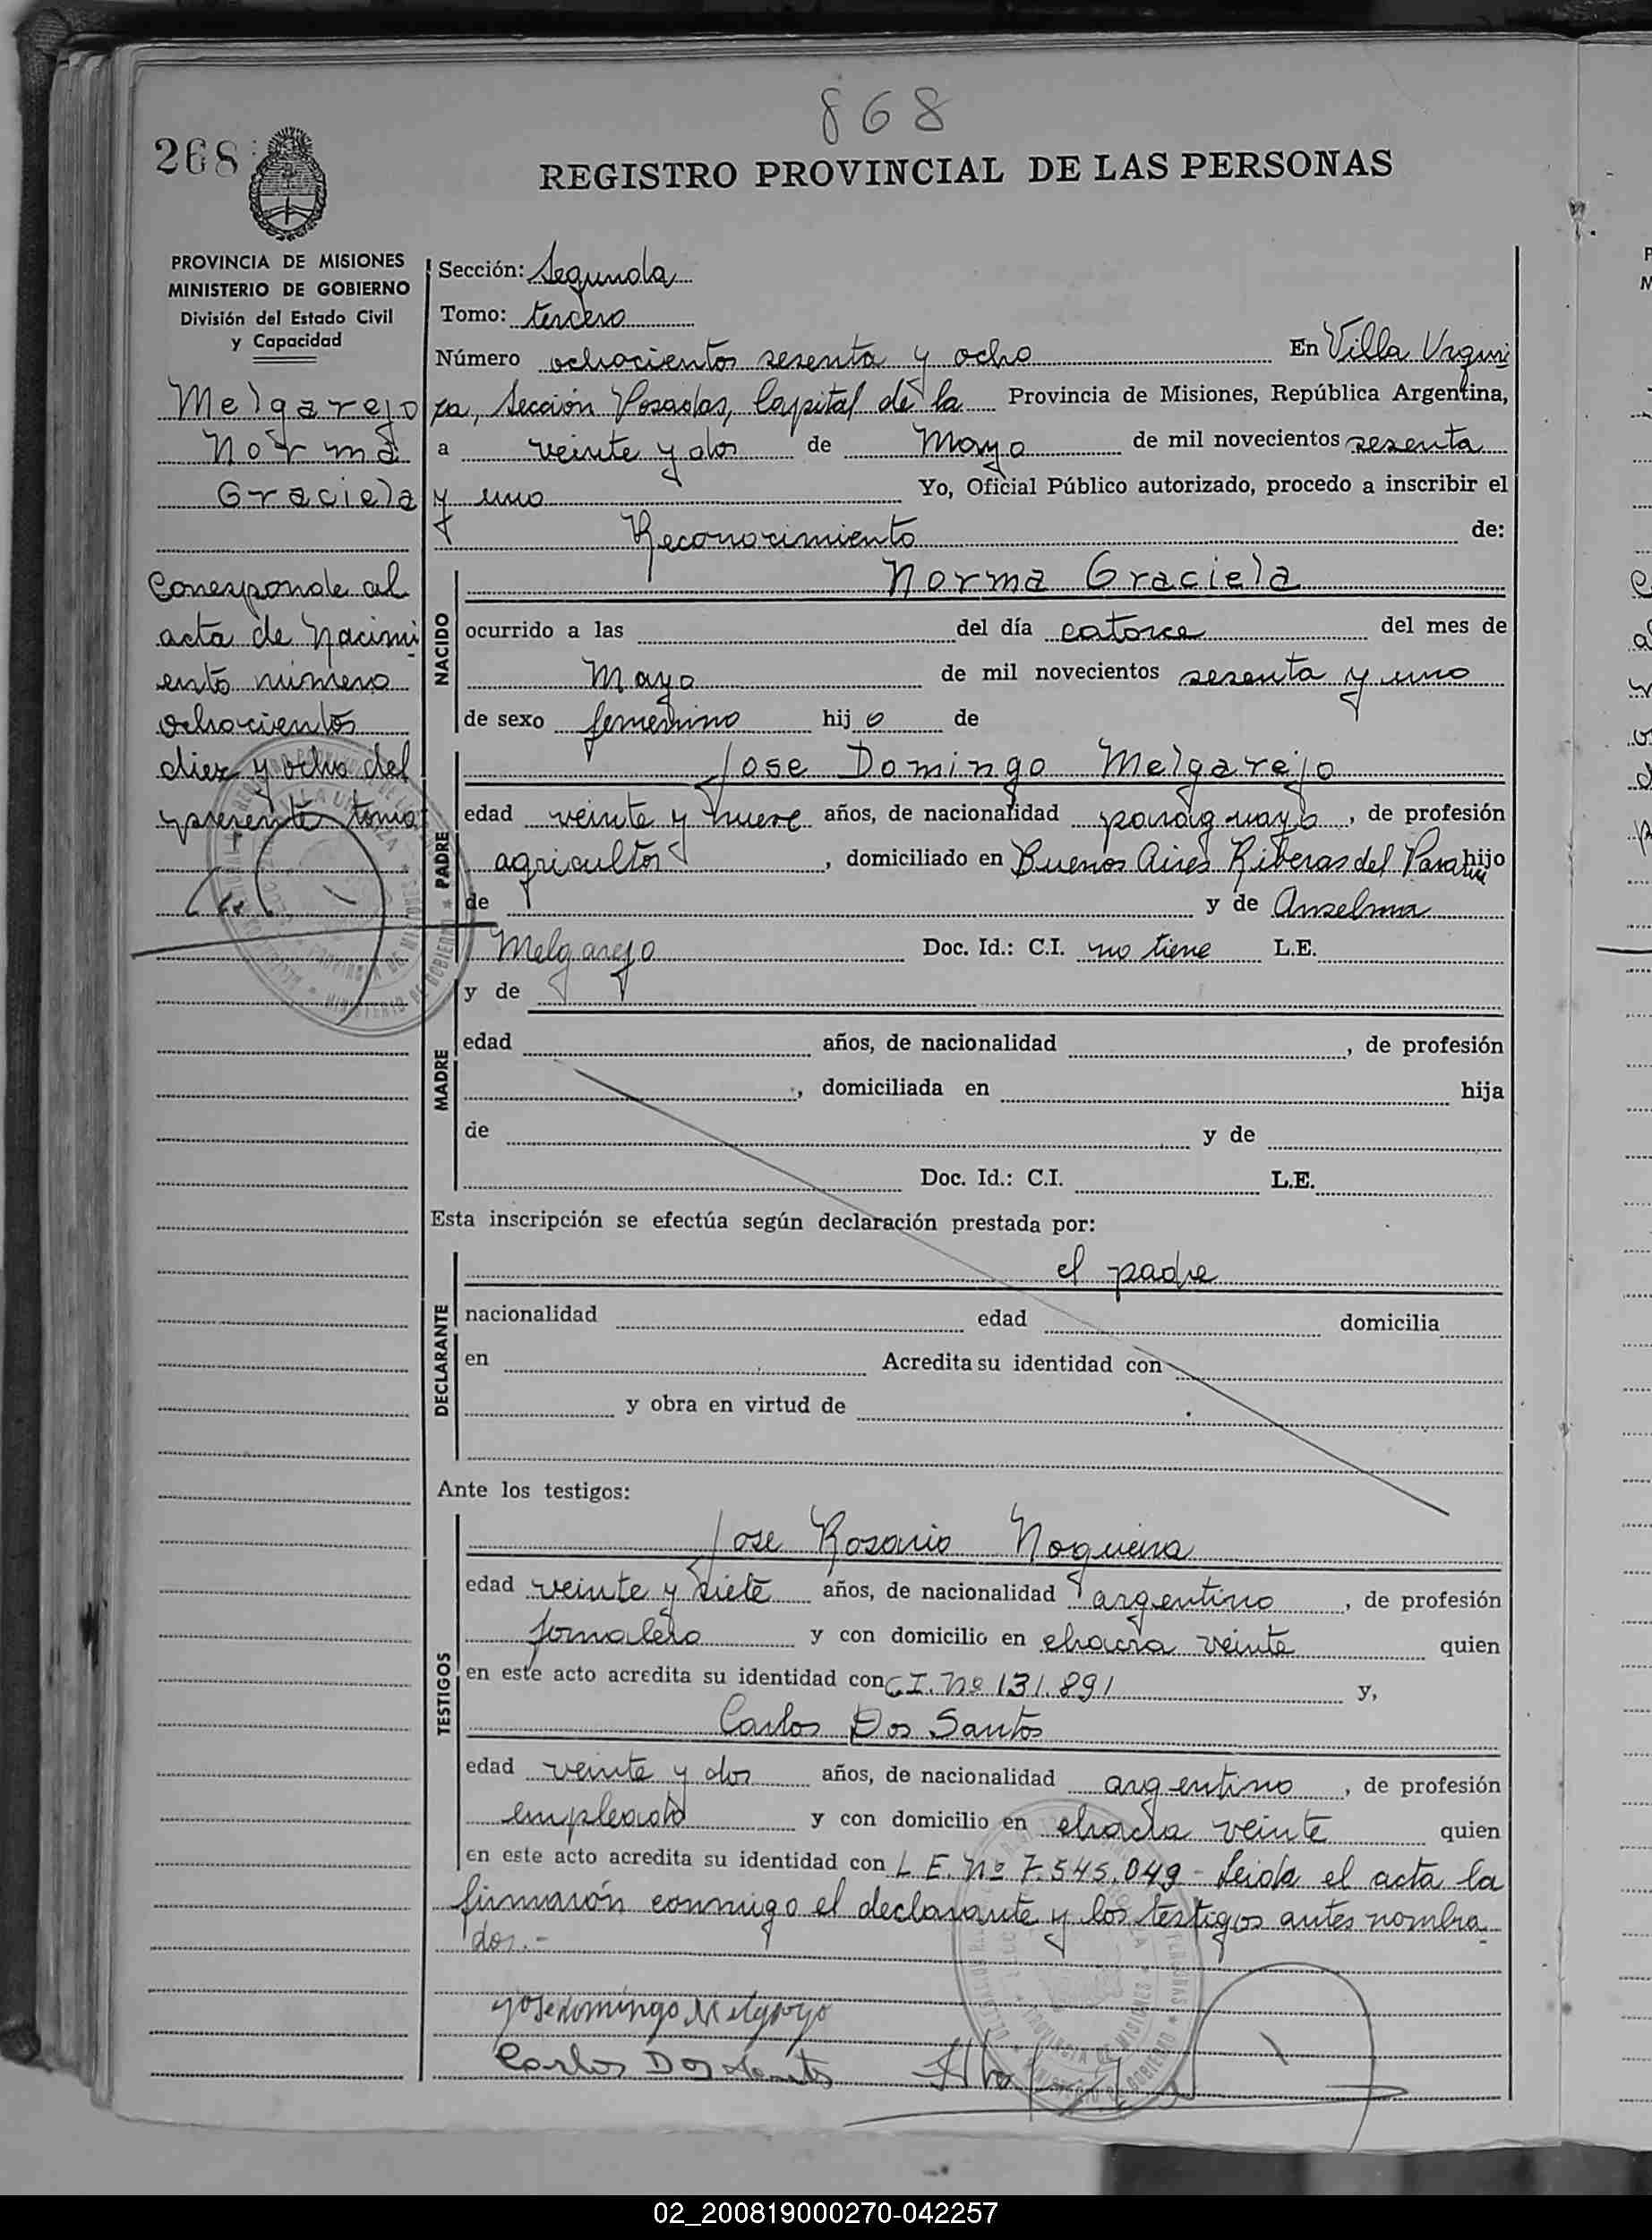 868
268
REGISTRO PROVINCIAL DE LAS PERSONAS
PROVINCIA DE MISIONES
MINISTERIO DE GOBIERNO
División del Estado Civil
y Capacidad
Melgarejo
Norma
Graciela
Corresponde al
acta de Nacimi
ento número
ochocientos
diez y ocho del
presente tomo
Sección: Segunda
Tomo: tercero
Número ochocientos sesenta y ocho En Villa Urqui
za, Sección Posadas, Capital de la Provincia de Misiones, República Argentina,
a veinte y dos de Mayo de mil novecientos sesenta
y uno Yo, Oficial Público autorizado, procedo a inscribir el
Reconocimiento de:
NACIDO
Norma Graciela
ocurrido a las del día catorce del mes de
Mayo de mil novecientos sesenta y uno
de sexo femenino hij o de
PADRE
Jose Domingo Melgarejo
edad veinte y nueve años, de nacionalidad paraguayo, de profesión
agricultor, domiciliado en Buenos Aires Riberas del Parana hijo
de y de Anselma
Melgarejo Doc. Id.: C.I. no tiene L.E.
MADRE
y de
edad años, de nacionalidad , de profesión
, domiciliada en hija
de y de
Doc. Id.: C.I. L.E.
Esta inscripción se efectúa según declaración prestada por:
DECLARANTE
el padre
nacionalidad edad domicilia
en Acredita su identidad con
y obra en virtud de
Ante los testigos:
TESTIGOS
Jose Rosario Nogueira
edad veinte y siete años, de nacionalidad argentino, de profesión
jornalero y con domicilio en chacra veinte quien
en este acto acredita su identidad con C.I. Nº 131.891 y,
Carlos Dos Santos
edad veinte y dos años, de nacionalidad argentino, de profesión
empleado y con domicilio en chacra veinte quien
en este acto acredita su identidad con L.E. Nº 7.545.049 - Leida el acta la
firmarón conmigo el declarante y los testigos antes nombra
dos.-
Jose domingo Melgarejo
Carlos Dos Santos
02_200819000270-042257